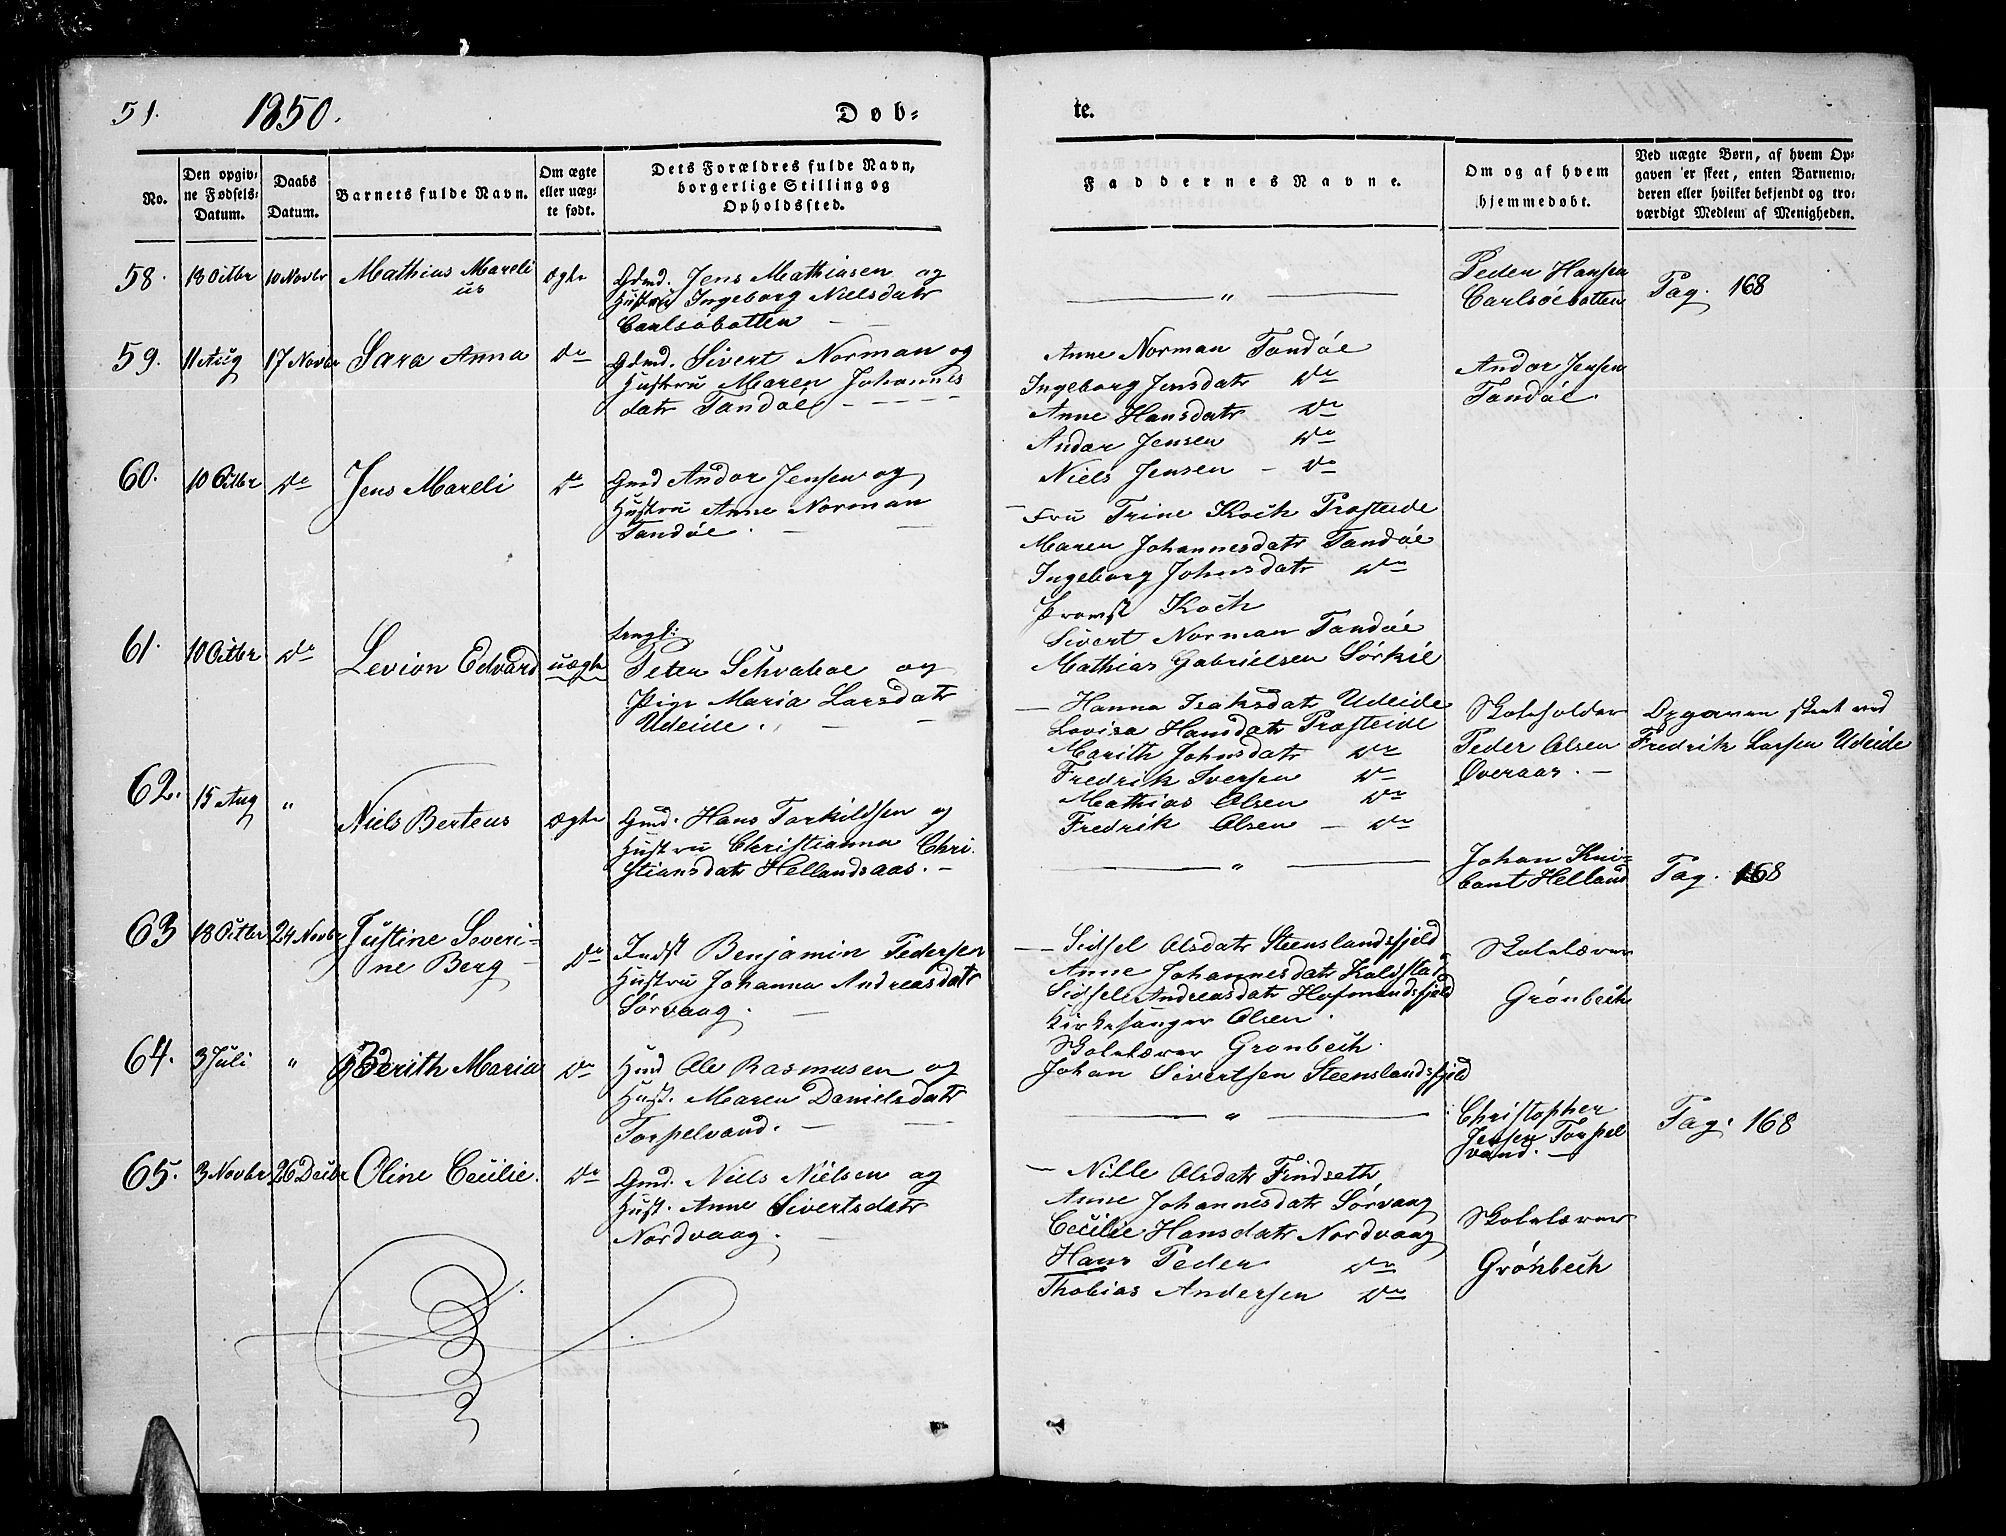 51. 1850. Døb-
te.
No.
Den opgiv-
ne Fødsels-
Datum.
Daabs
Datum.
Barnets fulde Navn.
Om ægte
eller uæg-
te født.
Dets Forældres fulde Navn,
borgerlige Stilling og
Opholdssted.
Faddernes Navne.
Om og af hvem
hjemmedøbt.
Ved uægte Børn, af hvem Op-
gaven er skeet, enten Barnemo-
deren eller hvilket bekjendt og tro-
værdigt Medlem af Menigheden.
58. 18 Octbr 10 Novbr Mathias Mareli
us
ægte
Gdmd. Jens Mathiasen og
Hustru Ingeborg Nielsdatr
Carlsöbotten
— " —
Peder Hansen
Carlsöebotten
Pag. 168
59. 11 Aug 17 Novbr Sara Anna Do
Gdmd. Sivert Norman og
Hustru Maren Johannes
datr Tandöe
Anne Norman Tandöe
Ingeborg Jensdatr Do
Anne Hansdatr Do
Andor Jensen Do
Niels Jensen - Do
Andor Jensen
Tandöe.
60. 10 Octbr Do Jens Mareli Do
Gmd Andor Jensen og
Hustru Anne Norman
Tandöe.
Fru Trine Koch Prosteide
Maren Johannesdatr Tandöe
Ingeborg Johnsdatr Do
Provst Koch
Sivert Norman Tandöe
Mathias Gabrielsen Sörkil
61. 10 Octbr Do Levion Edvard uægte
Ungk:
Peter Schvaboe og
Pige Maria Larsdatr
Udeide.
Hanna Isaksdat Udeide
Lovisa Hansdatr Prosteide
Marith Johnsdatr Do
Fredrik Iversen Do
Mathias Olsen Do
Fredrik Olsen - Do
Skoleholder
Peder Olsen
Øveraas.
Opgaven skeet ved
Fredrik Larsen Udeide
62. 15 Aug " Niels Berteus ægte
Gmd. Hans Torkildsen og
Hustru Christianna Chri-
stiansdatr Hellandsaas.
— " —
Johan Kni-
Helland
Pag. 168
63 18 Octbr 24 Novbr Justine Severi-
ne Berg
Do
Indst Benjamin Pedersen
Hustru Johanna Andreasdatr
Sörvaag.
Sidsel Olsdatr Steenslandsfjeld
Anne Johannesdatr Koldstad
Sidsel Andreasdatr Hofmandsfjeld
Kirkesanger Olsen.
Skolelærer Grønbech.
Johan Sivertsen Steenslandsfjeld
Skolelærer
Grönbech
64. 3 Juli " Berith Maria Do
Hmd Ole Rasmusen og
Hust. Maren Danielsdatr
Torpelvand.
— " —
Christopher
Jensen Torpel
vand.
Pag: 168
65. 3 Novbr 26 Decbr Oline Cecilie. Do
Gmd. Niels Nielsen og
Hust. Anne Sivertsdatr
Nordvaag.
Nille Olsdatr Findseth
Anne Johannesdatr Sörvaag
Cecilie Hansdatr Nordvaag
Hans Peder Do
Thobias Andersen Do
Skolelærer
Grönbech